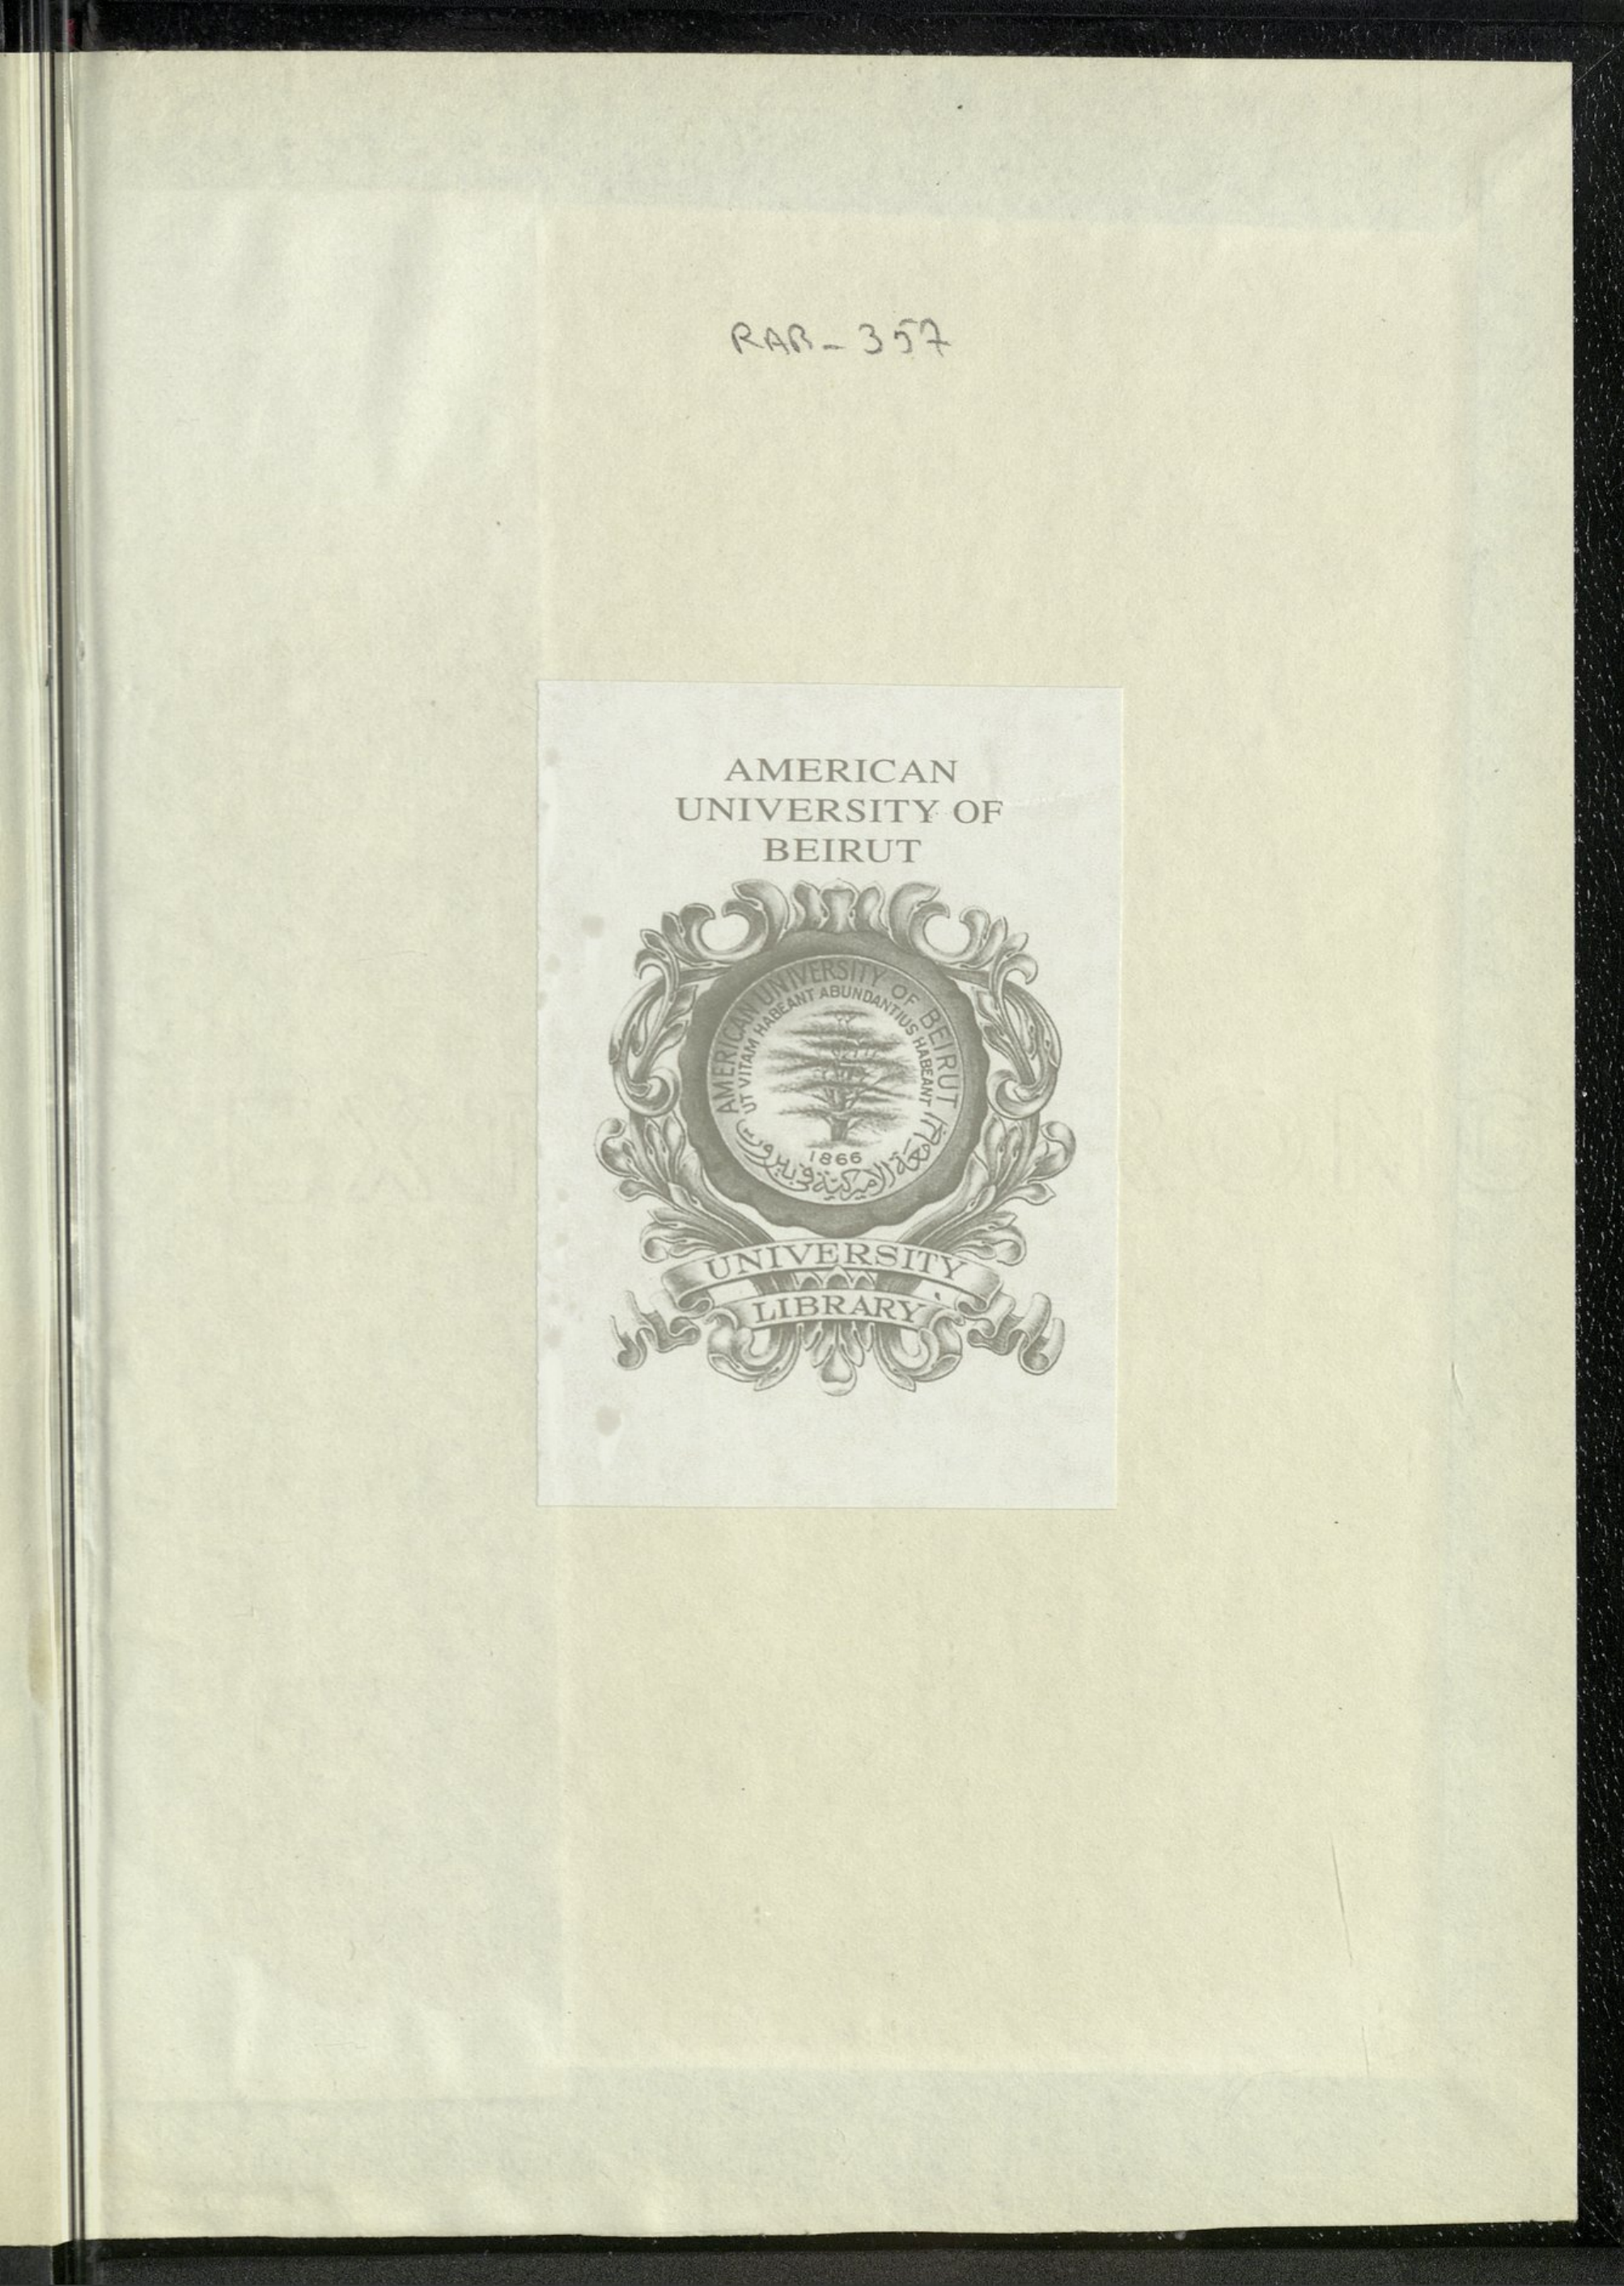 RAB-357
AMERICAN
UNIVERSITY OF
BEIRUT
AMERICAN UNIVERSITY OF BEIRUT
UT VITAM HABEANT ABUNDANTIUS HABEANT
1866
الجامعة الاميركية في بيروت
UNIVERSITY
LIBRARY